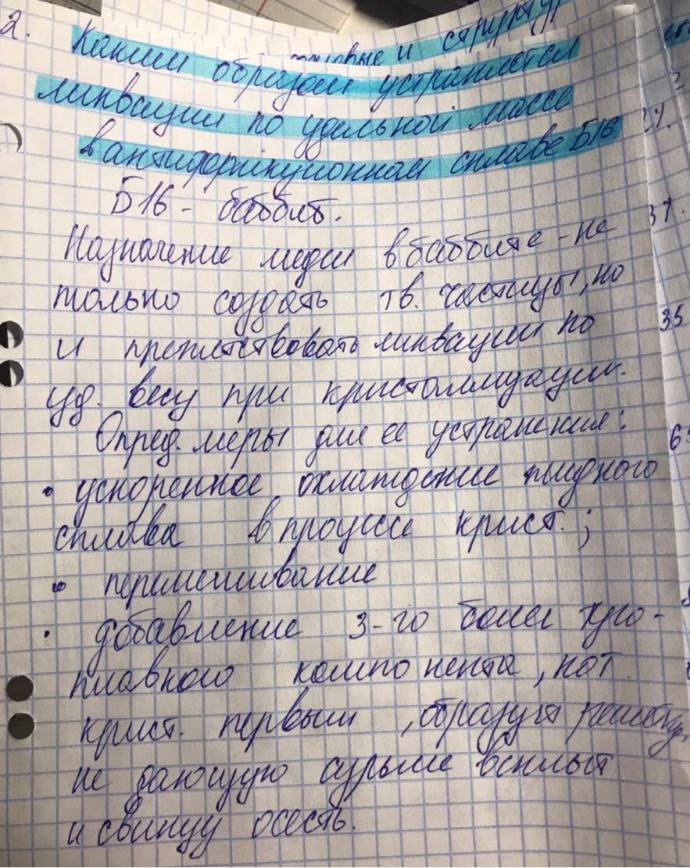 2.
овые и структур
Каким образом устраняется
ликвации по удельной массе
в антифрикционном сплаве Б16
Б16 - баббит.
Назначение меди в баббите - не
только создать тв. частицы, но
и препятствовать ликвации по
уд. весу при кристаллизации.
Опред. меры для ее устранения:
• ускоренное охлаждение жидкого
сплава в процессе крист.;
• перемешивание
• добавление 3-го более туго-
плавного компонента, кот.
крист. первым, образуя решетку,
не дающую сурьме всплыт
и свинцу осесть.
37.
35